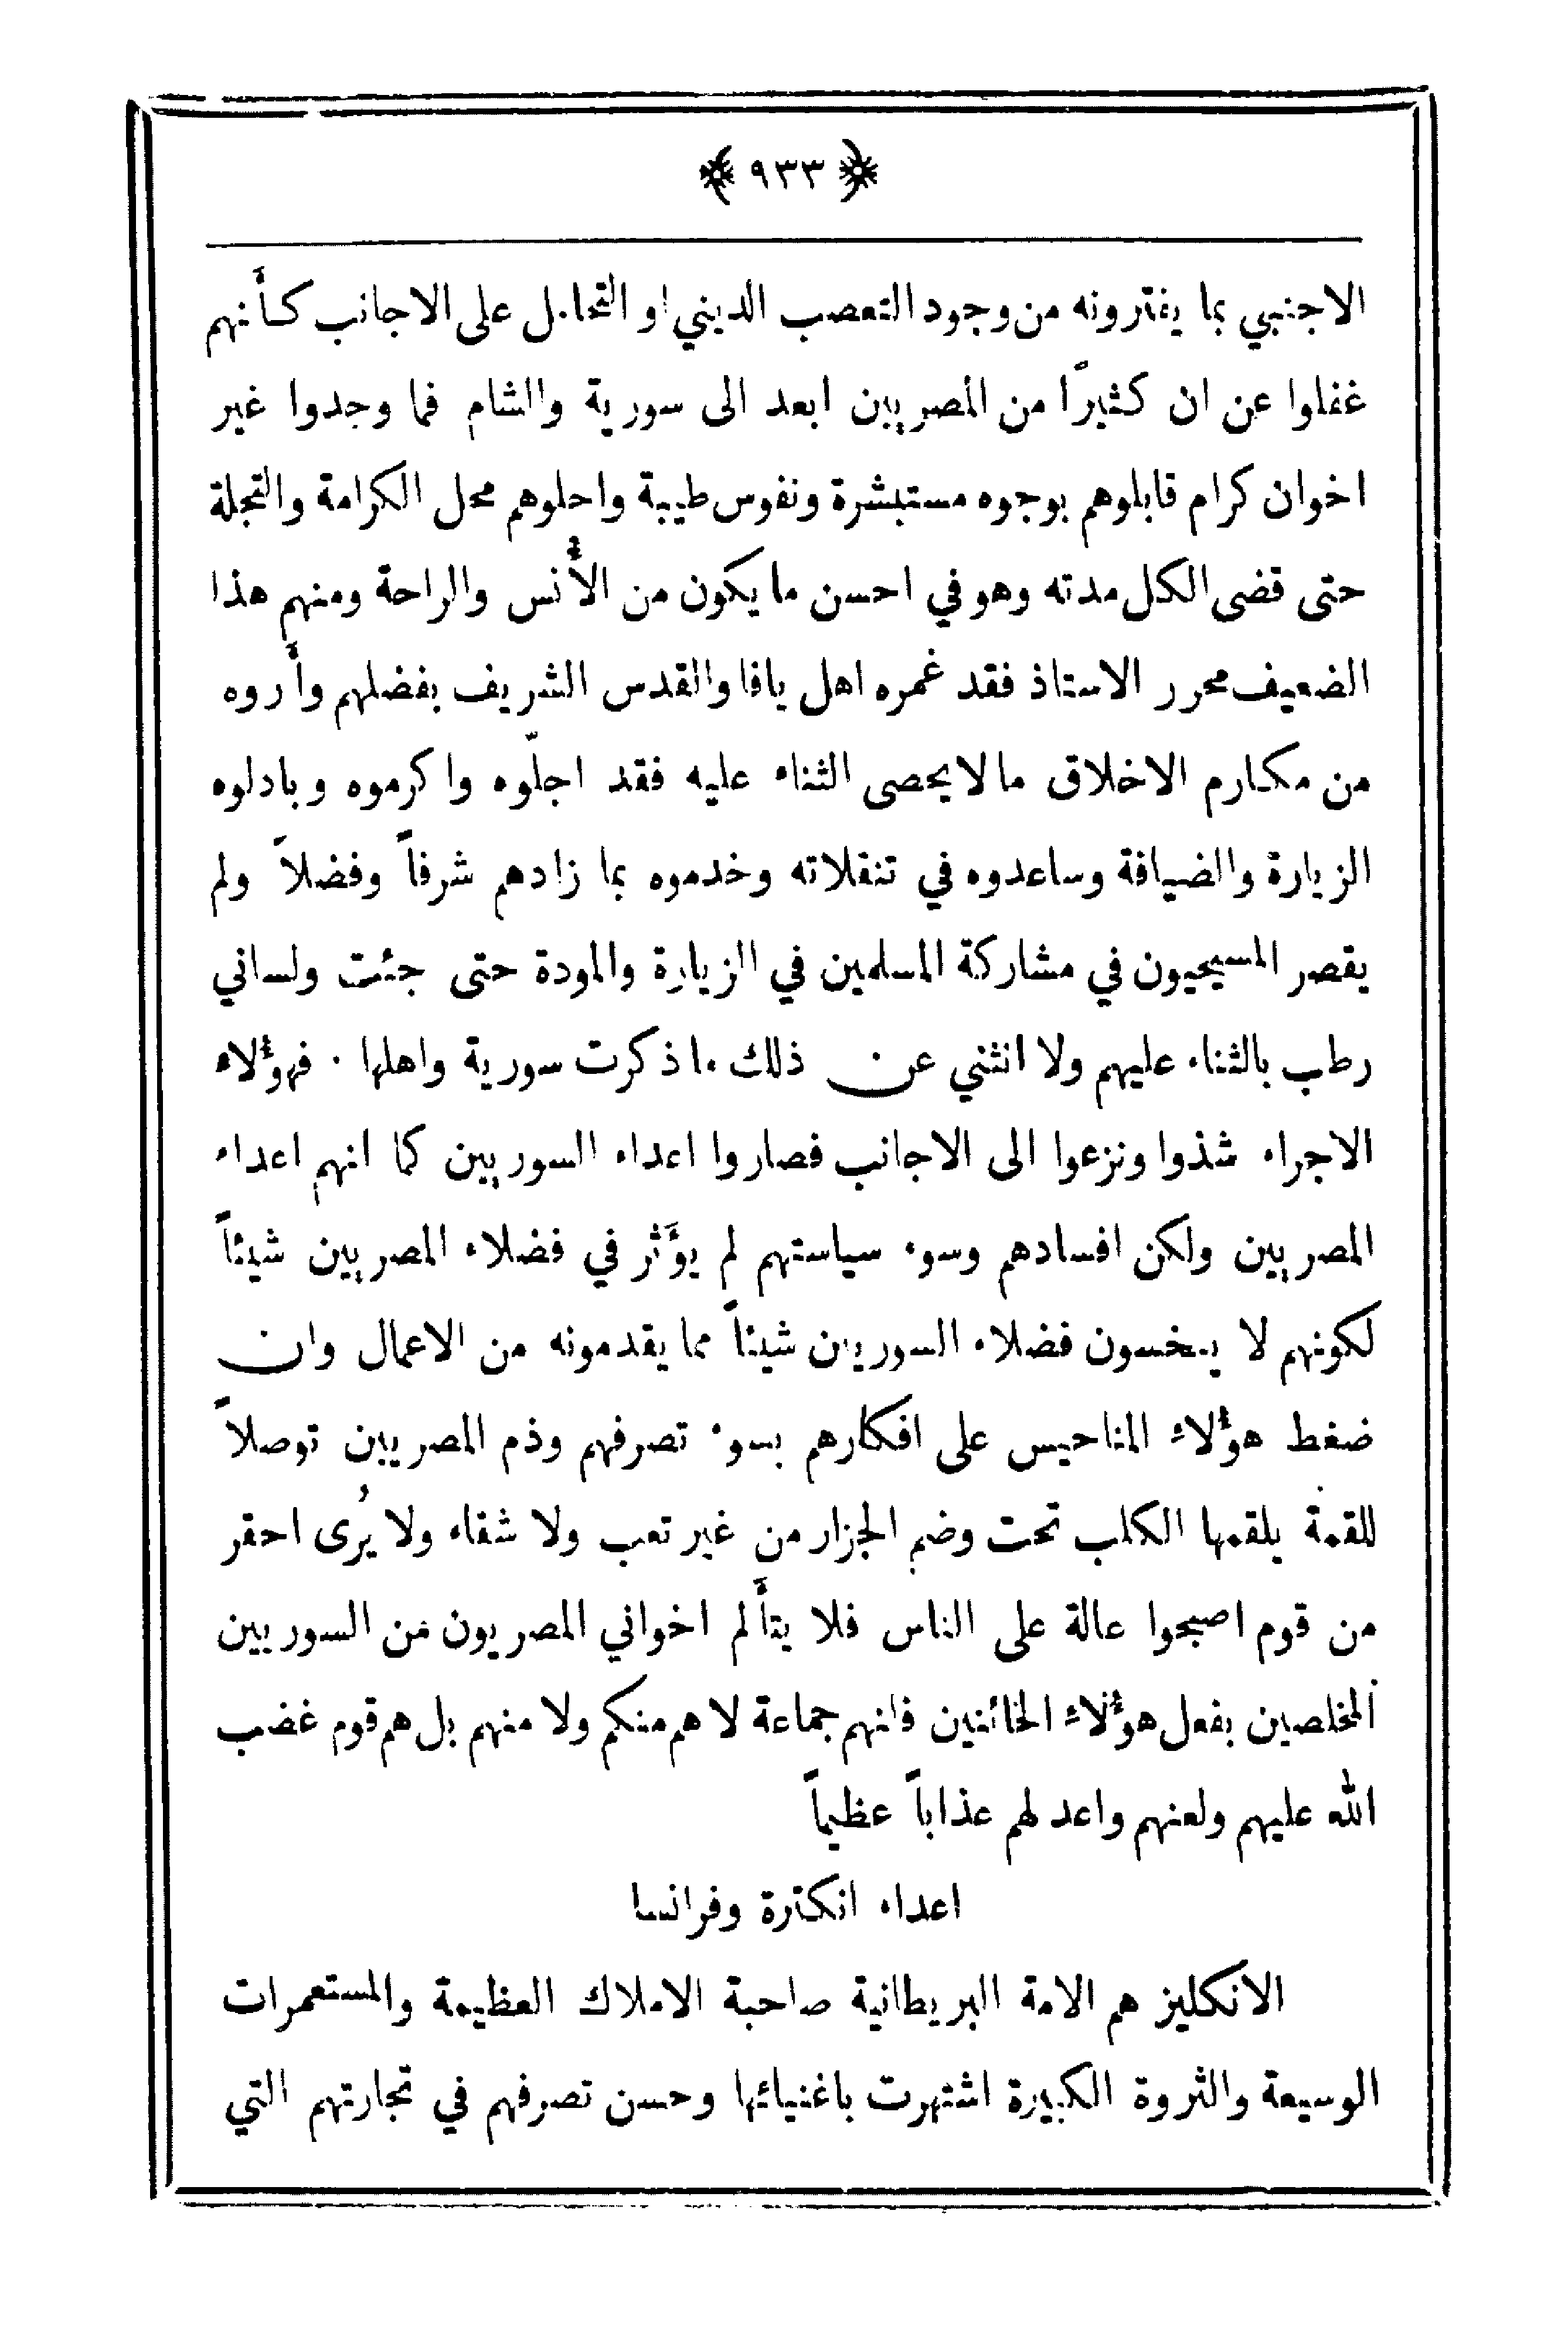 ﴿ ٩٣٣ ﴾
الاجنبي بما يفترونه من وجود التعصب الديني او التحامل على الاجانب كأنهم
غفلوا عن ان كثيرًا من المصريين ابعد الى سورية والشام فما وجدوا غير
اخوان كرام قابلوهم بوجوه مستبشرة ونفوس طيبة واحلوهم محل الكرامة والتجلة
حتى قضى الكل مدته وهو في احسن ما يكون من الأُنس والراحة ومنهم هذا
الضعيف محرر الاستاذ فقد غمره اهل يافا والقدس الشريف بفضلهم وأَروه
من مكارم الاخلاق ما لا يحصى الثناء عليه فقد اجلّوه واكرموه وبادلوه
الزيارة والضيافة وساعدوه في تنقلاته وخدموه بما زادهم شرفاً وفضلاً ولم
يقصر المسيحيون في مشاركة المسلمين في الزيارة والمودة حتى جئت ولساني
رطب بالثناء عليهم ولا انثني عن ذلك ما ذكرت سورية واهلها . فهؤلاء
الاجراء شذوا ونزعوا الى الاجانب فصاروا اعداء السوريين كما انهم اعداء
المصريين ولكن افسادهم وسوء سياستهم لم يؤَثر في فضلاء المصريين شيئاً
لكونهم لا يبخسون فضلاء السوريين شيئاً مما يقدمونه من الاعمال وان
ضغط هؤلاءِ المناحيس على افكارهم بسوء تصرفهم وذم المصريين توصلاً
للقمة يلقمها الكلب تحت وضم الجزار من غير تعب ولا شقاء ولا يُرى احقر
من قوم اصبحوا عالة على الناس فلا يتأَلم اخواني المصريون من السوريين
المخلصين بفعل هؤلاءِ الخائنين فانهم جماعة لا هم منكم ولا منهم بل هم قوم غضب
الله عليهم ولعنهم واعد لهم عذاباً عظيماً
اعداء انكترة وفرانسا
الانكليز هم الامة البريطانية صاحبة الاملاك العظيمة والمستعمرات
الوسيعة والثروة الكبيرة اشتهرت باغنيائها وحسن تصرفهم في تجارتهم التي